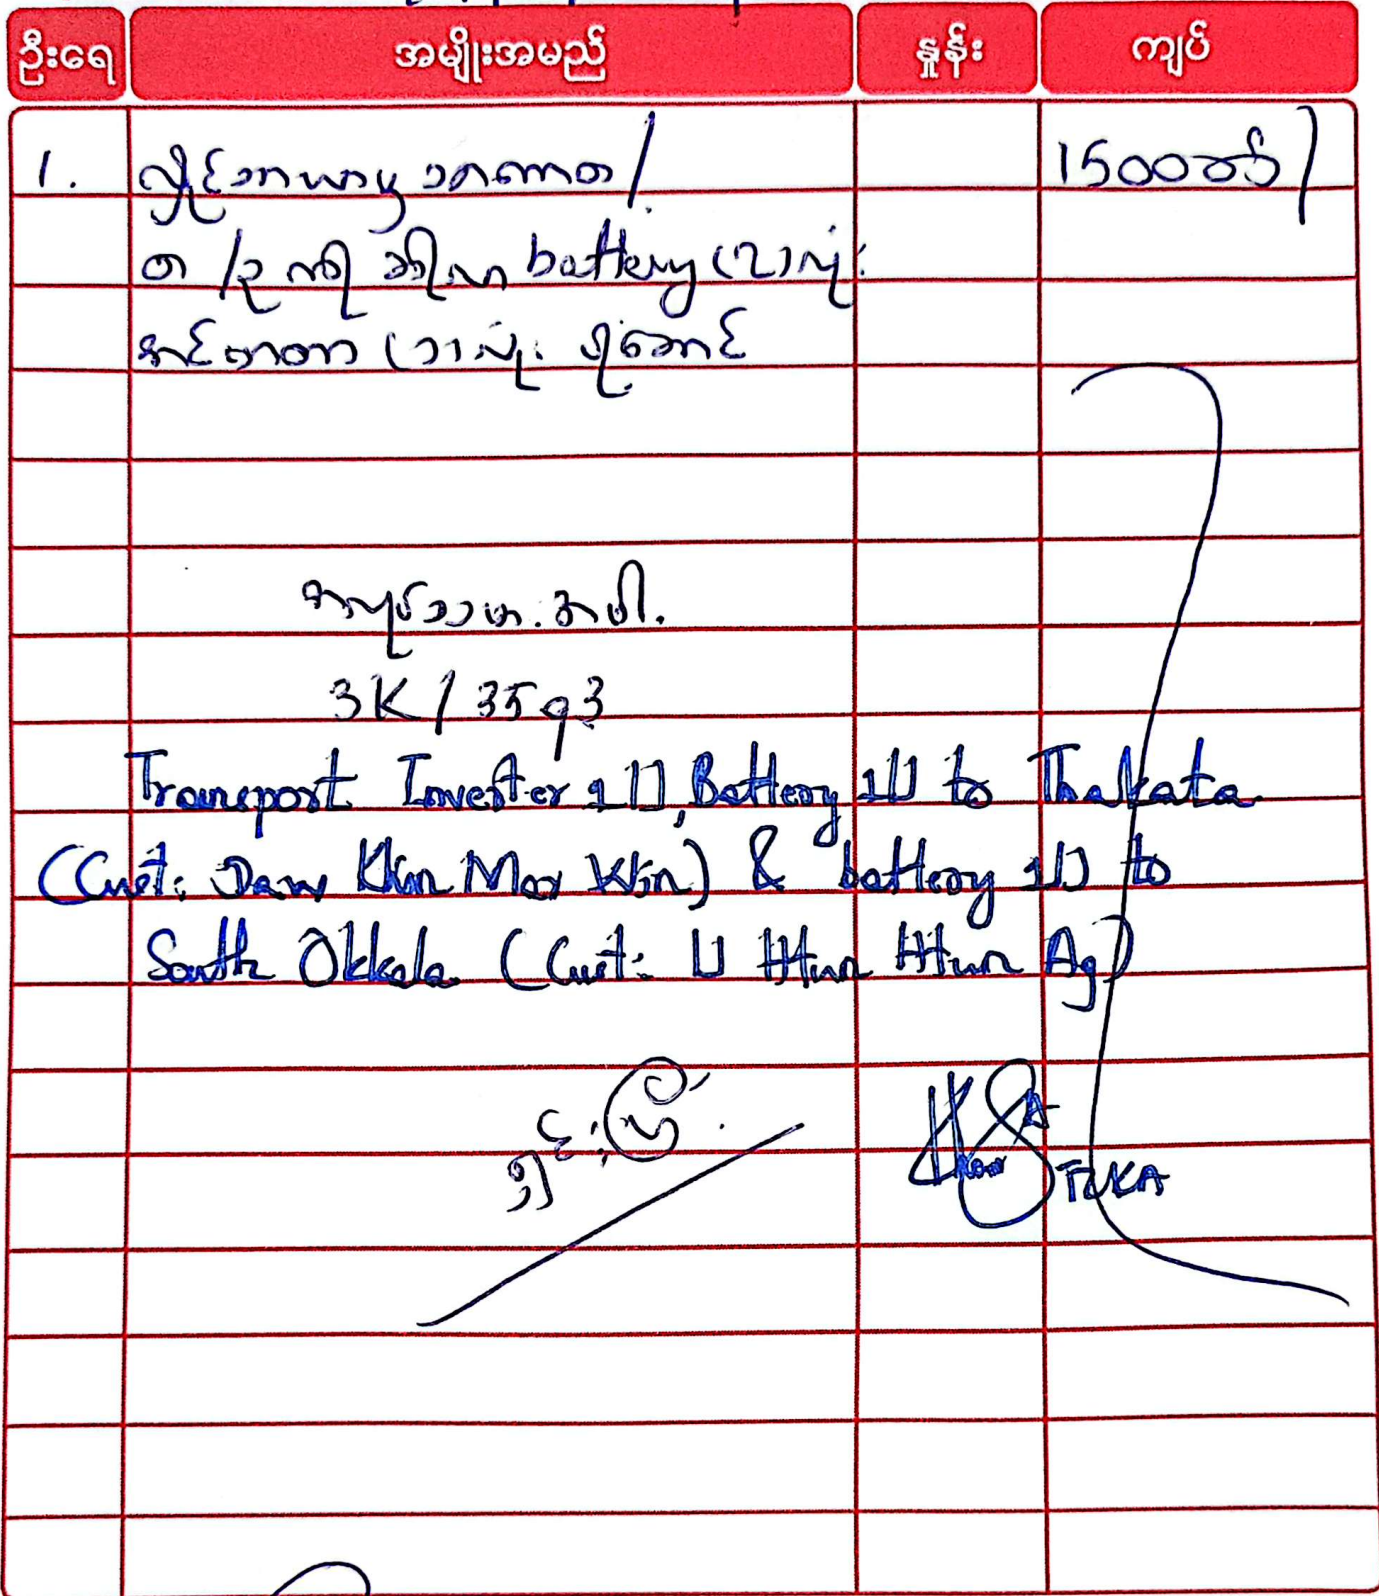 ဦးရေ အမျိုးအမည် နှုန်း ကျပ်
1. လှိုင်သာယာမှ သာကေတ / 150000ိ/
တ / ဥ ကို battery (2) လုံး
အင်ဗာတာ (1) လုံး ပို့ဆောင်
3K / 3593
Transport Invester 1U, Battery 1U to Thakata
(Cust: Daw Khin Mar Win) & battery 1U to
South Okkala (Cust: U Htun Htun Ag)
ရှင်းပြီး